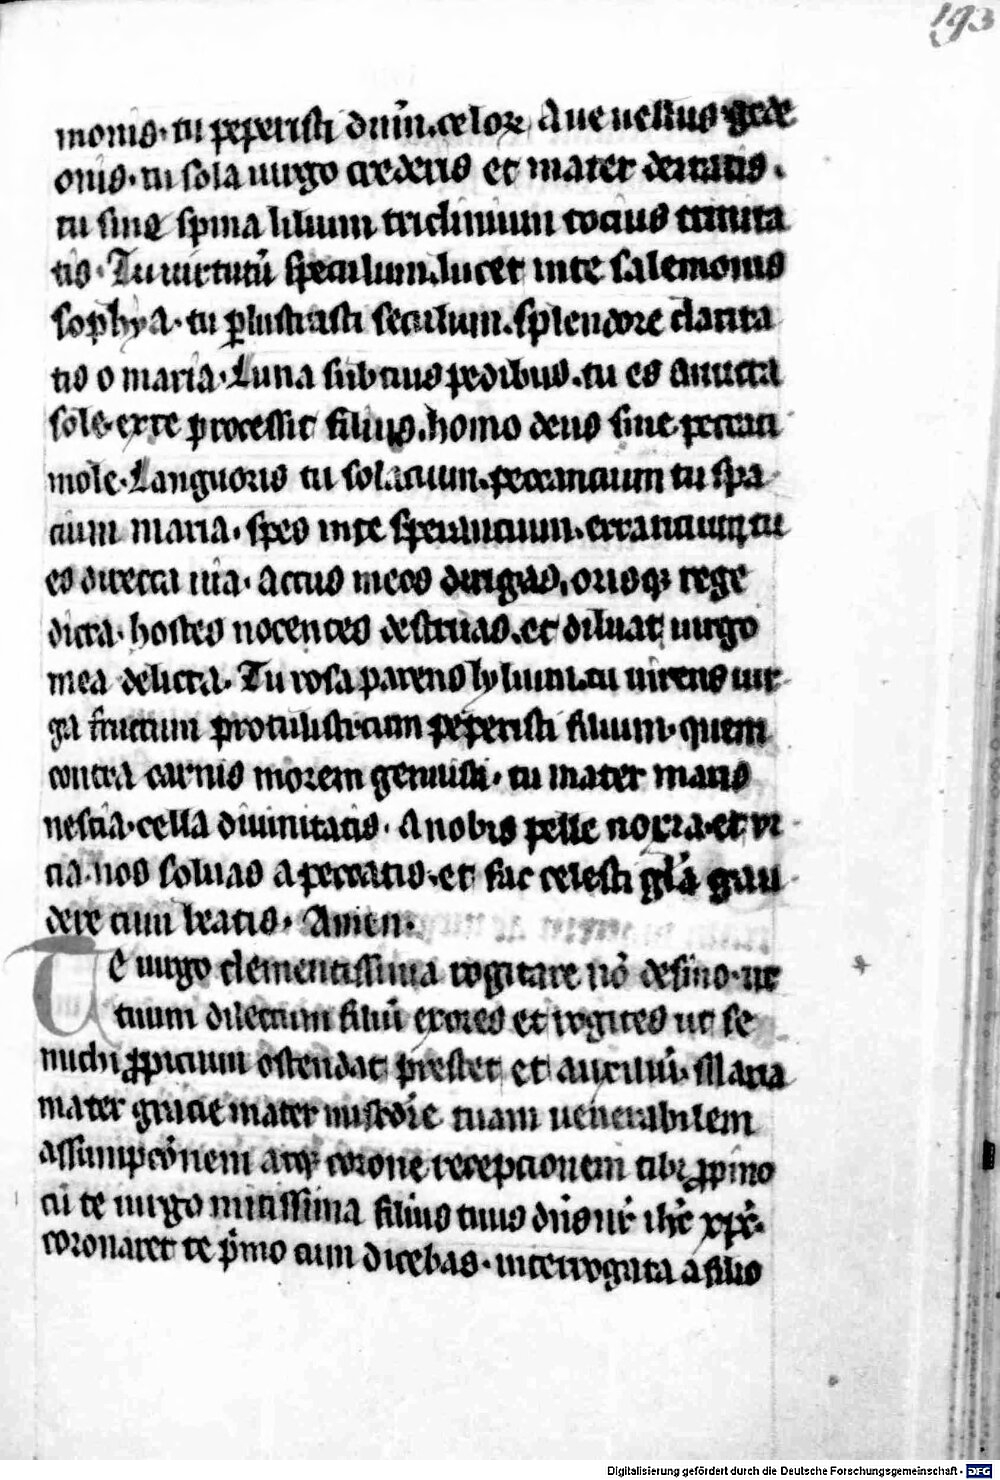 193
monis · tu peperisti dn̄m · celoꝝ Aue uellus gede
onis · tu sola uirgo crederis et mater deitatis ·
tu sine spina lilium triclinium tocius trinita
tis · Tu uirtutū speculum · lucet in te salemonis
sophya · tu ꝑlustrasti seculum · splendore clarita
tis o maria · Luna sub tuis pedibus · tu es amicta
sole · ex te processit filius · homo deus sine peccati
mole · Languoris tu solacium · peccancium tu spa
cium maria · spes in te sperancium · errancium tu
es directa uia · Actus meos dirigas · orisqꝫ rege
dicta · hostes nocentes destruas · et diluat uirgo
mea delicta · Tu rosa parens lylium · tu uirens uir
ga fructum protulisti cum peperisti filium · quem
contra carnis morem genuisti · tu mater maris
nescia · cella diuinitatis · A nobis pelle noxia · et vi
cia · nos soluas a peccatis · et fac celesti gl̄a gau
dere cum beatis · Amen ·
Te uirgo clementissima rogitare nō desino · ut
tuum dilectum filiū exores et rogites ut se
michi ꝓpicium ostendat prestet et auxiliū · Maria
mater gracie mater misc̄die tuam uenerabilem
assumpcōnem atqꝫ corone recepcionem tibi ꝓpino
cū te uirgo mitissima filius tuus dn̄s nr̄ ih̄c xp̄c ·
coronaret te p̄mo cum dicebas · interrogata a filio
Digitalisierung gefördert durch die Deutsche Forschungsgemeinschaft - DFG